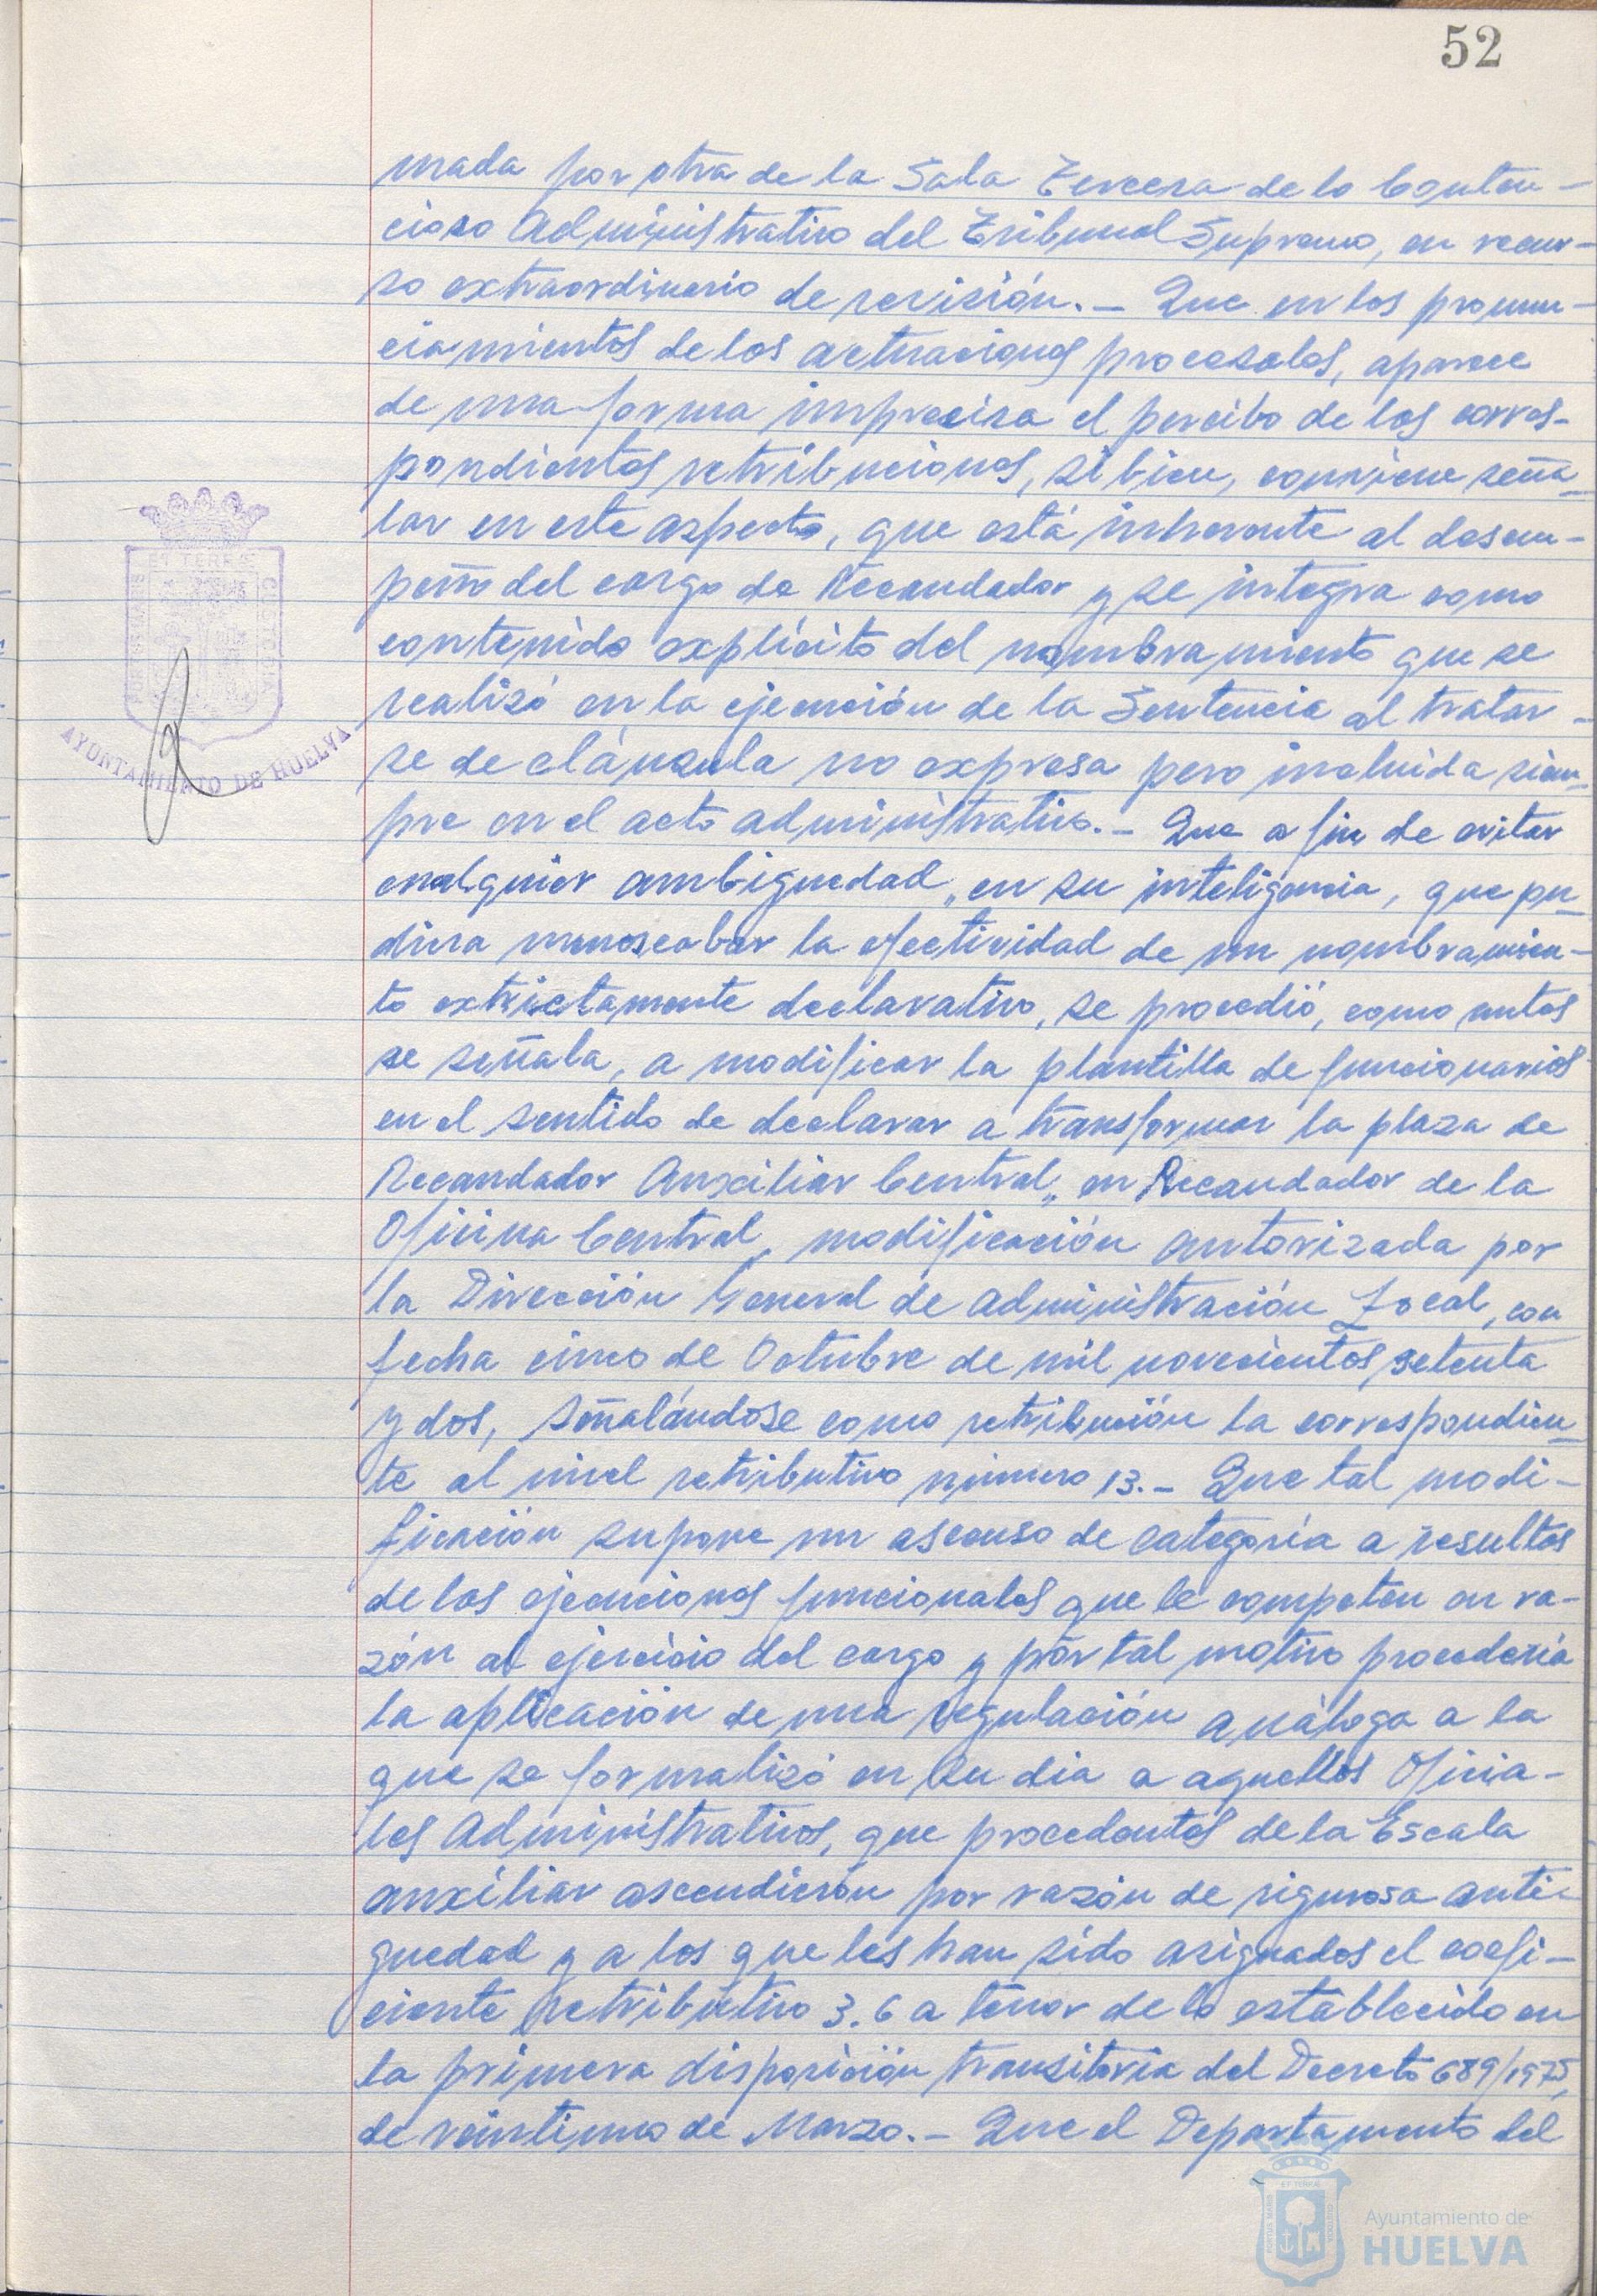 52
mada por otra de la Sala Tercera de lo Conten-
cioso Administrativo del Tribunal Supremo, en recur-
so extraordinario de revisión.- Que en los pronun-
ciamientos de los actuaciones procesales, aparece
de una forma imprecisa el percibo de las corres-
pondientes retribuciones, si bien, conviene seña-
lar en este aspecto, que está inherente al desem-
peño del cargo de Recaudador y se integra como
contenido explícito del nombramiento que se
realizó en la ejecución de la Sentencia al tratar-
se de cláusula no expresa pero incluida siem-
pre en el acto administrativo.- Que a fin de evitar
cualquier ambiguedad, en su inteligencia, que pu-
diera menoscabar la efectividad de un nombramien-
to extrictamente declarativo, se procedió, como antes
se señala, a modificar la plantilla de funcionarios
en el sentido de declarar a transformar la plaza de
Recaudador Auxiliar Central, en Recaudador de la
Oficina Central, modificación autorizada por
la Dirección General de Administración Local, con
fecha cinco de Octubre de mil novecientos setenta
y dos, señalándose como retribución la correspondien-
te al nivel retributivo número 13.- Que tal modi-
ficación supone un ascenso de categoría a resultas
de las ejecuciones funcionales que le competen en ra-
zón al ejercicio del cargo y por tal motivo procedería
la aplicación de una regulación análoga a la
que se formalizó en su dia a aquellos Oficia-
les Administrativos, que procedentes de la Escala
auxiliar ascendieron por razón de rigurosa anti-
guedad y a los que les han sido asignados el coefi-
ciente retributivo 3.6 a tenor de lo establecido en
la primera disposición transitoria del Decreto 689/1975,
de veintiuno de Marzo.- Que el Departamento del
AYUNTAMIENTO DE HUELVA
Ayuntamiento de
HUELVA